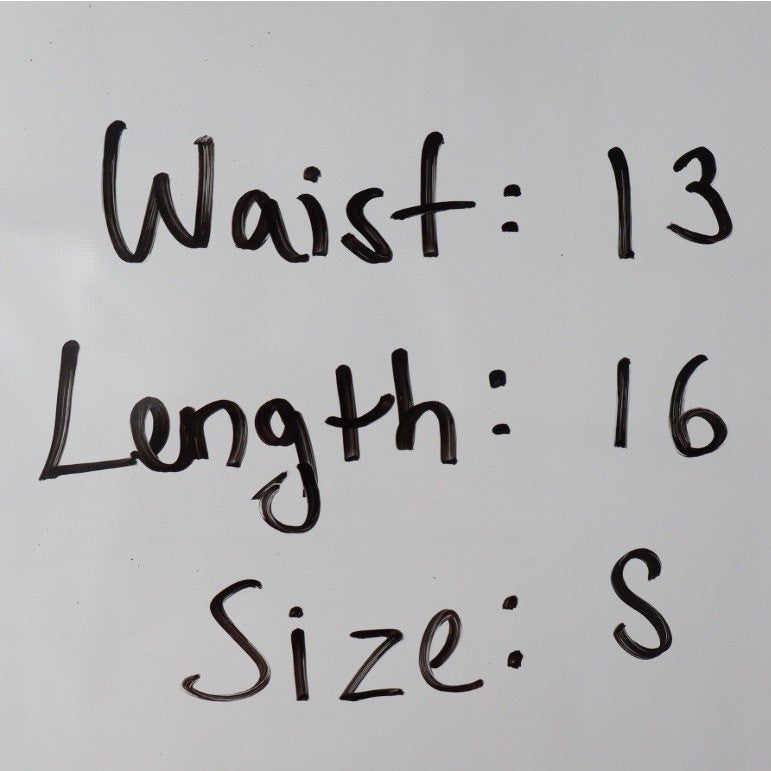 Waist: 13
Length: 16
Size: S